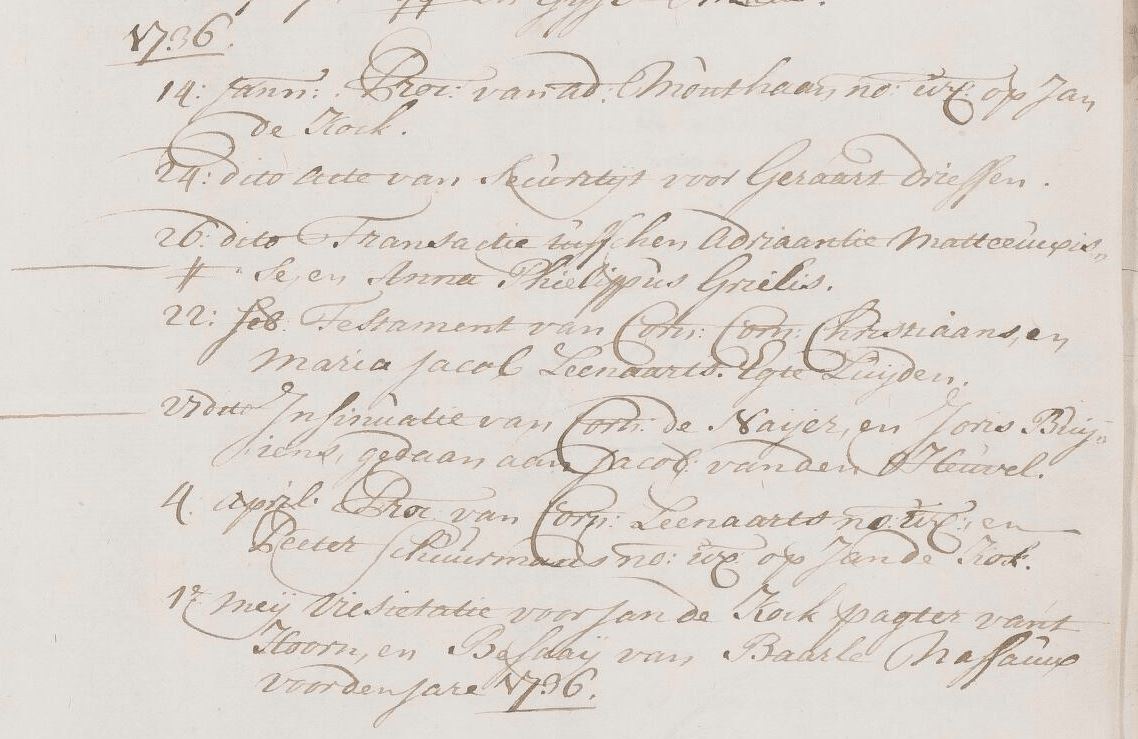 en
1736.
14: Jann: Proc: van ad: Mouthaan no: ux: op Jan
de Kock.
24: dito Acte van Seuritijt voor Geraart Driessen.
26: dito Transactie tusschen Adriaantie
se, en Anna Philippus Grielis.
22: feb: Testament van Corn: Corn: Christiaans, en
Maria Jacob Leenaarts. Egte Luijden.
27 dito Insinuatie van Corn: de Naijer, en Joris Buij=
iens, gedaan aan Jacob vanden Heuvel.
4. april: Proc: van Corn: Leenaarts no: ux:, en
Peeter Schuurmans no: ux: op Jan de Kok.
meij Viesietatie voor Jan de Kock pagter van't
Hoorn, en Besaaij van Baarle Nassauw
voor den jare 1736.